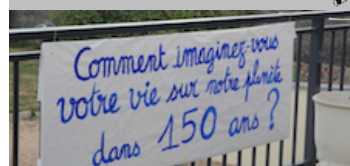 Comment imaginez-vous
votre vie sur notre planète
dans 150 ans ?